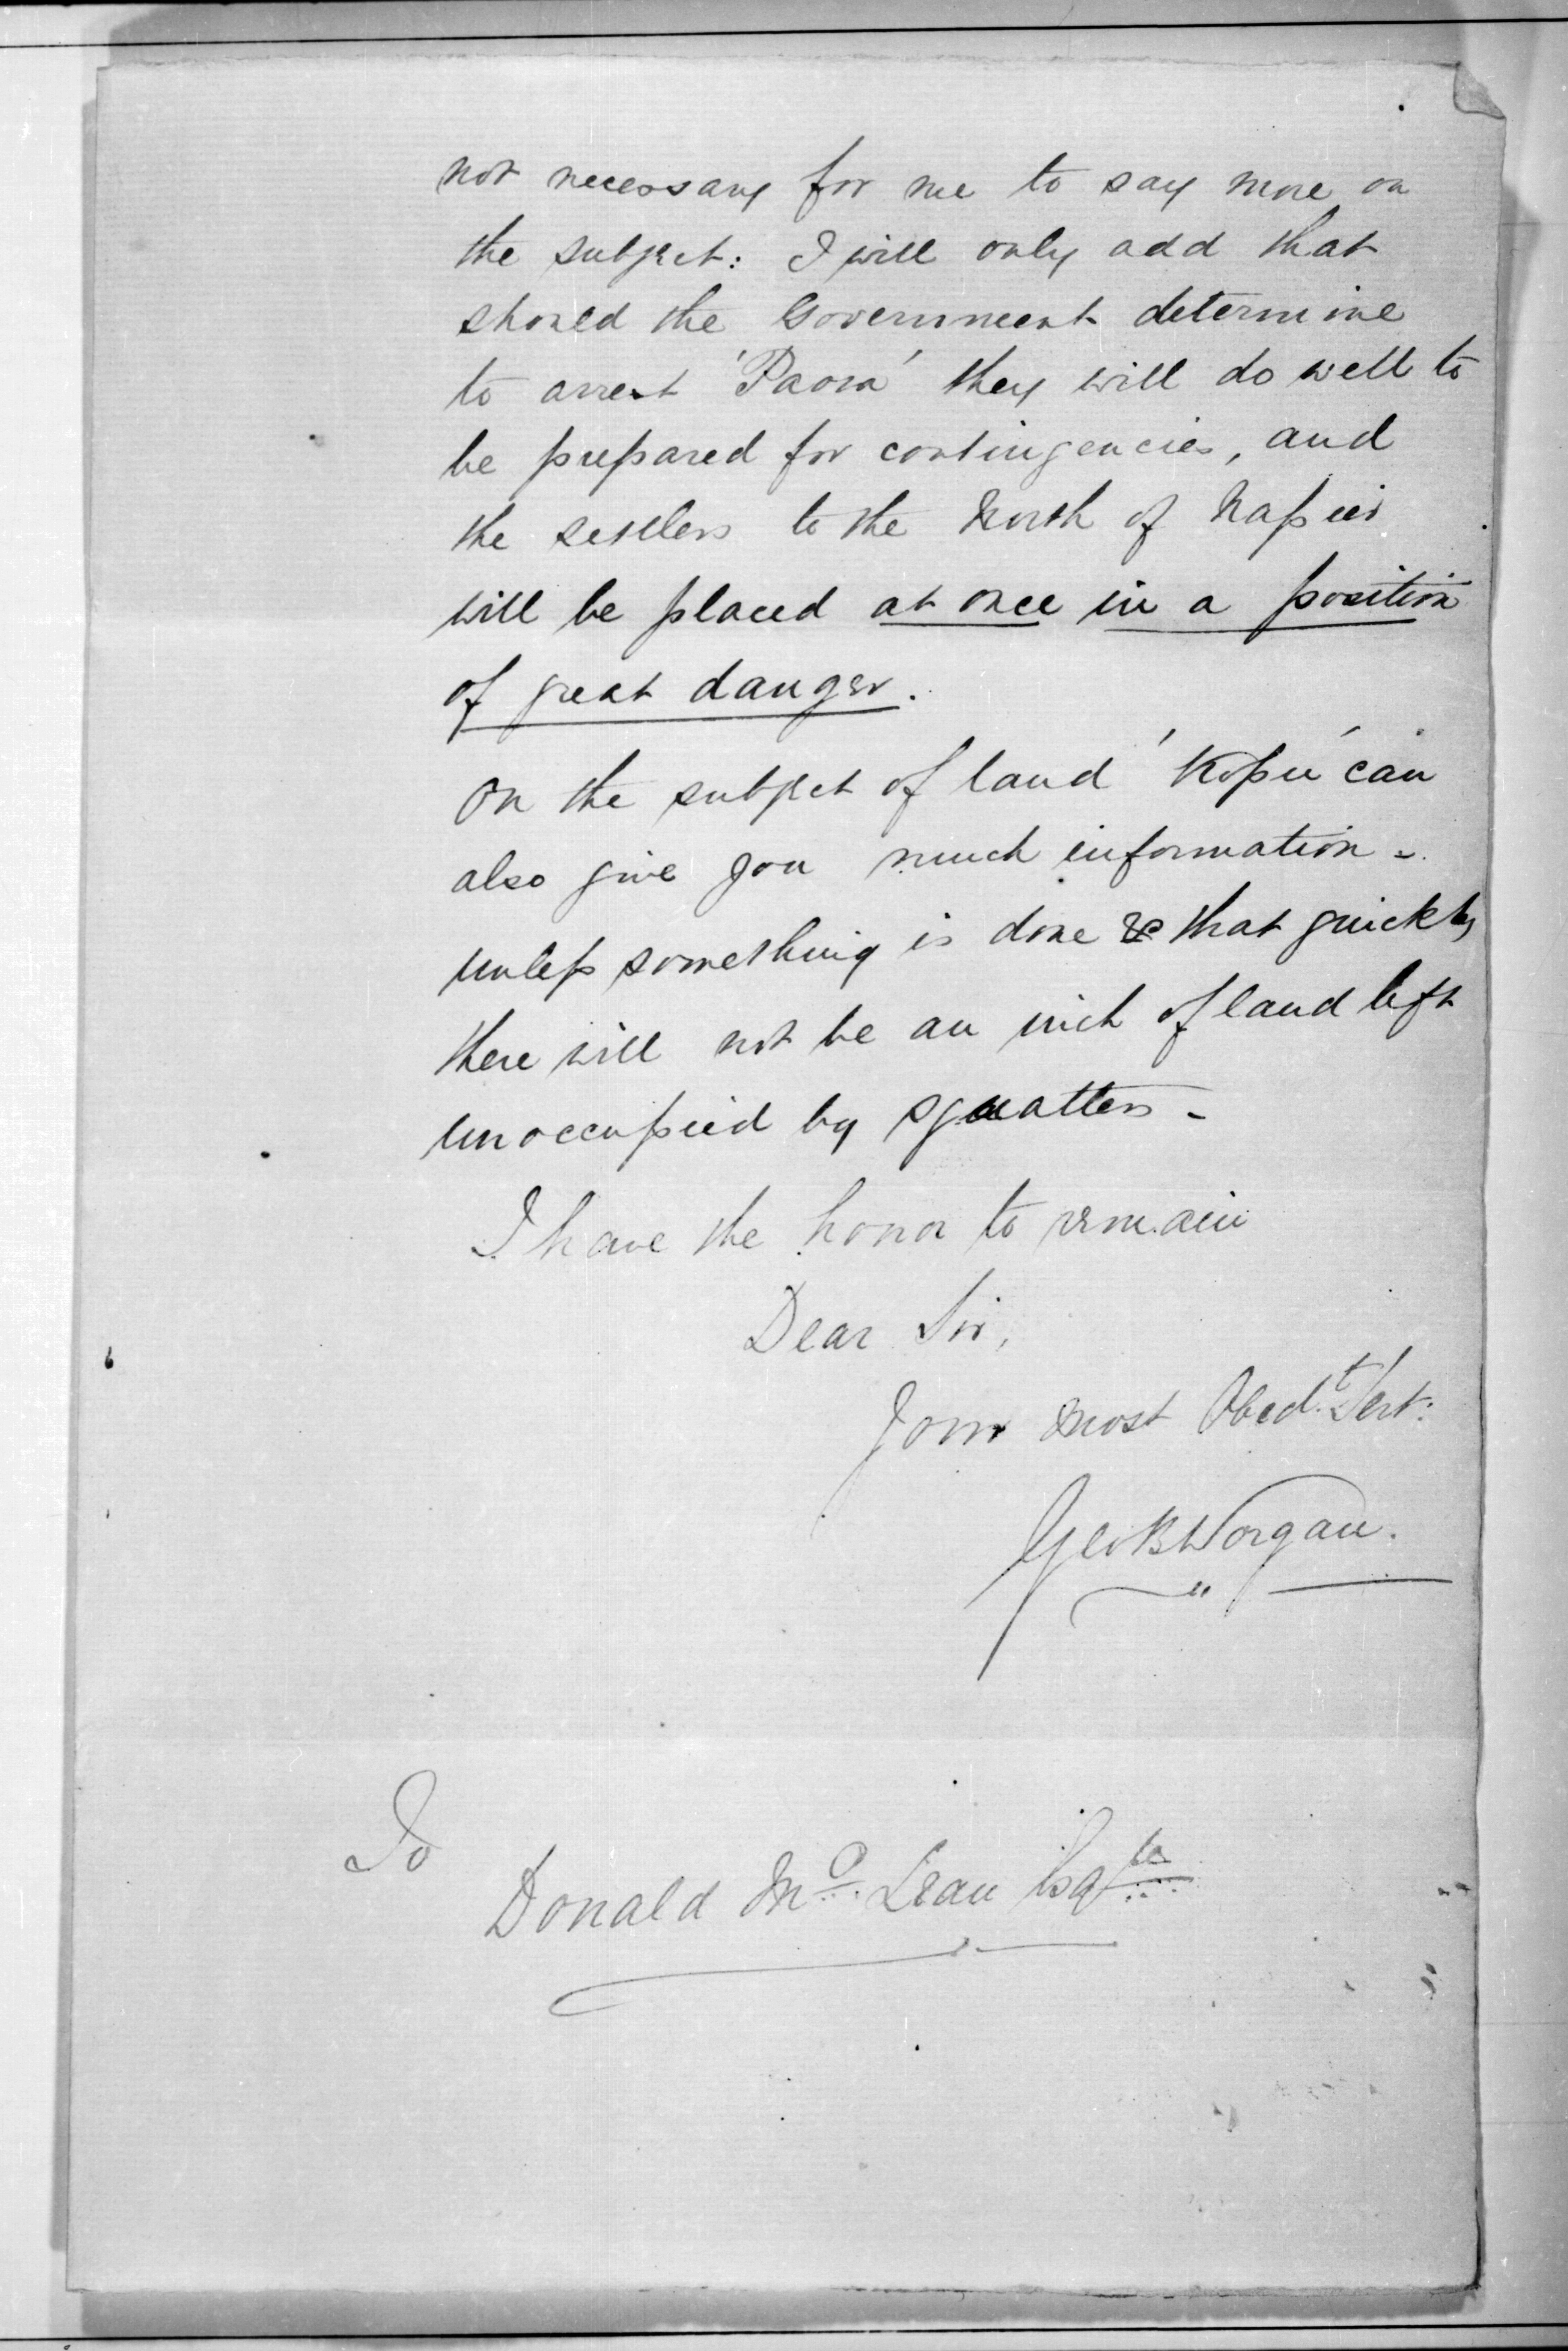 not necessary for me to say more on
the subject: I will only add that
should the Government determine
to arrest 'Paora' they will do well to
be prepared for contingencies, and
the settlers to the North of Napier
will be placed at once in a position
of great danger.
On the subject of land 'Kopu' can
also give you much information -
unless something is done & that quickly
there will not be an inch of land left
unoccupied by squatters -
I have the honor to remain
Dear Sir,
Your most Obedt. Servt:
Geo B Worgan.
To
Donald McLean Esqre